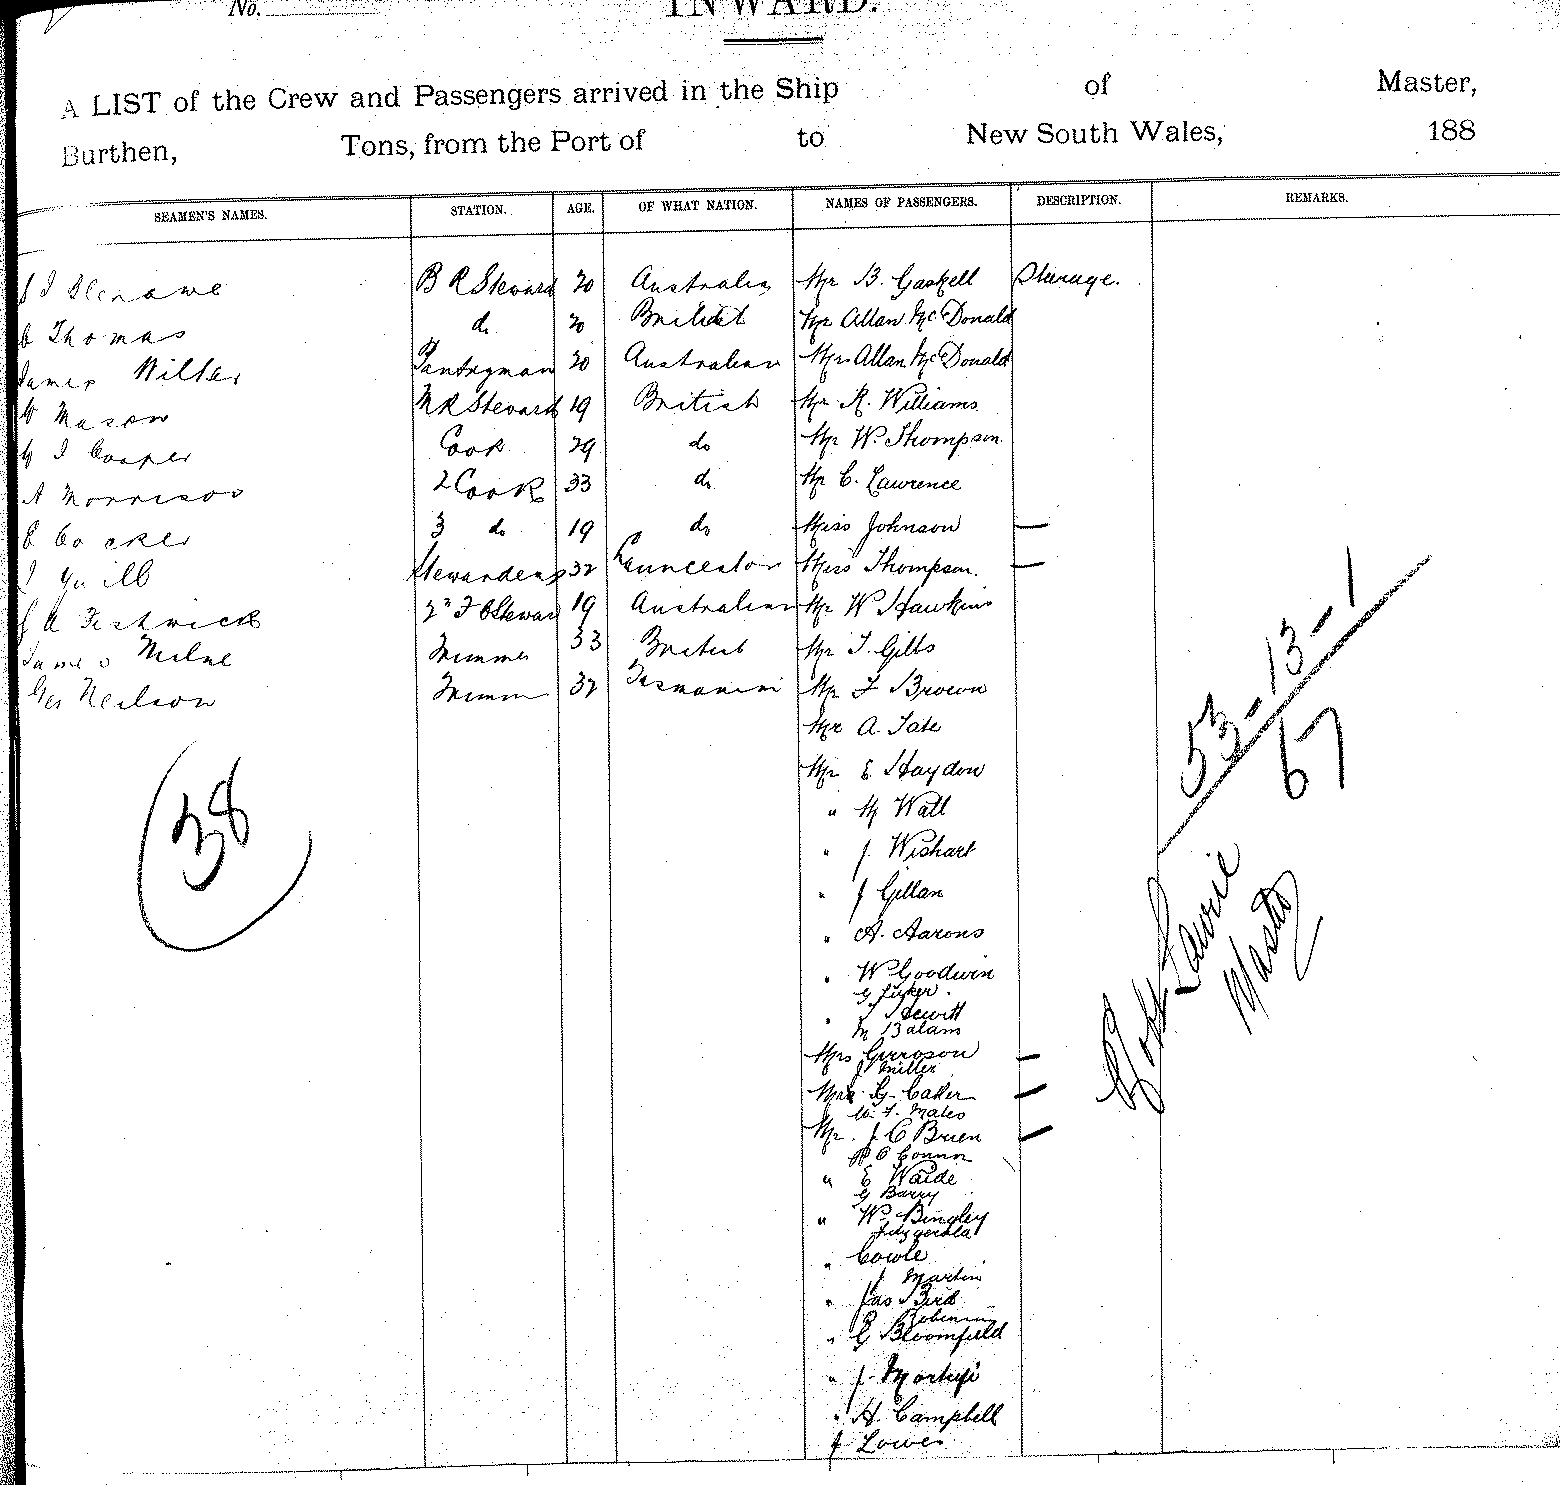 No.
INWARD.
A LIST of the Crew and Passengers arrived in the Ship of Master,
Burthen, Tons, from the Port of to New South Wales, 188
SEAMEN'S NAMES. STATION. AGE. OF WHAT NATION. NAMES OF PASSENGERS. DESCRIPTION. REMARKS.
B R Steward 20 Australia Mr B. Gaskell Sterage.
C Thomas do 20 British Mr Allan McDonald
James Pantryman 20 Australian Mrs Allan McDonald
W Mason M R Steward 19 British Mr R. Williams
J Cooper Cook 29 do Mr W. Thompson
A Morrison 2 Cook 33 do Mr C. Lawrence
C Cocker 3 do 19 do Miss Johnson —
Stewardess 32 Launceston Miss Thompson. —
A Festwick 19 Australian Mr W Hawkins
James Milne Trimmer 33 British Mr T. Gibbs
Geo Neilson Trimm 32 Tasmanian Mr F Brown
Mr A. Tate
Mr E Haydon
" M Watt
" J. Wishart
" J Gillan
" A. Aarons
" W Goodwin
" J Hewitt
M Balam
Mrs —
J Miller
G. Caker —
Males
Mr. J. O Brien —
P O Connor
" E Waide
G Barry
" W. Bingley
Fitzgerald
" Cowle
J Martin
" Jas Bird
Robinson
" G Bloomfield
" J.
" H. Campbell
J Lowes
38
53-13-1
67
Robt Laurie
Master